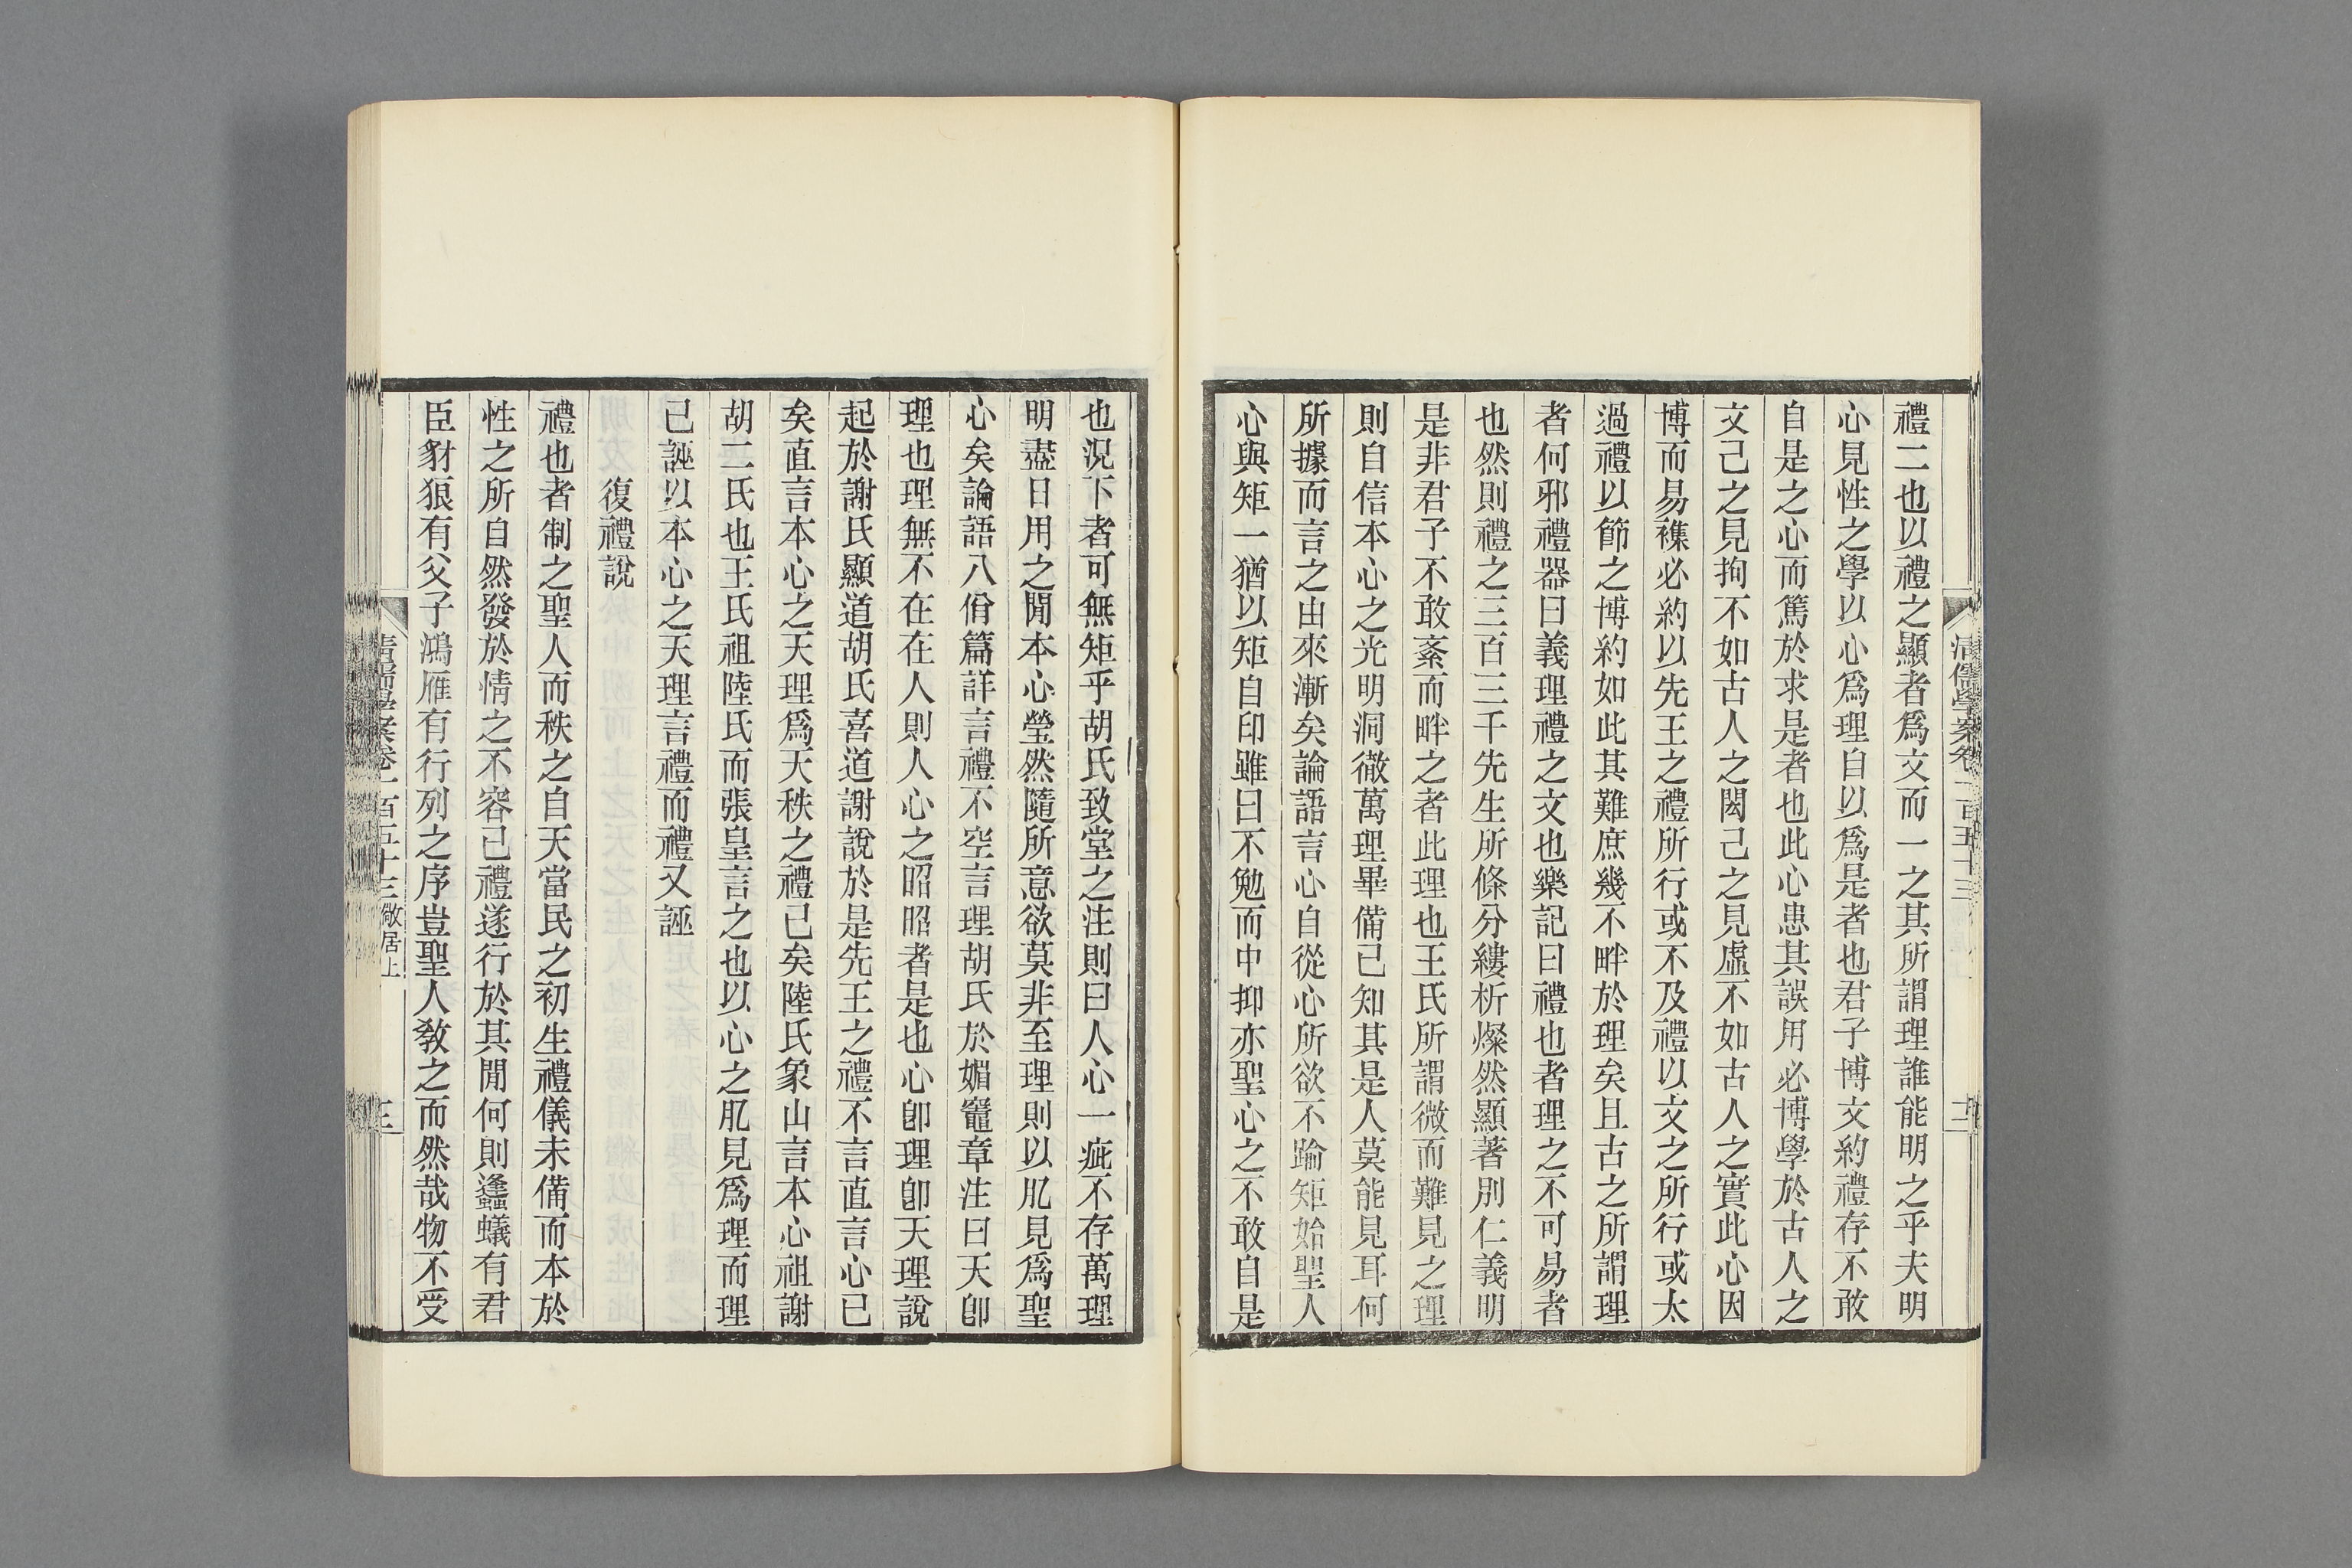 清儒學案卷一百五十三
二
禮二也以禮之顯者爲文而一之其所謂理誰能明之乎夫明
心見性之學以心爲理自以爲是者也君子博文約禮存不敢
自是之心而篤於求是者也此心患其誤用必博學於古人之
文己之見拘不如古人之閎己之見虛不如古人之實此心因
博而易襍必約以先王之禮所行或不及禮以文之所行或太
過禮以節之博約如此其難庶幾不畔於理矣且古之所謂理
者何邪禮器曰義理禮之文也樂記曰禮也者理之不可易者
也然則禮之三百三千先生所條分縷析燦然顯著別仁義明
是非君子不敢紊而畔之者此理也王氏所謂微而難見之理
則自信本心之光明洞徹萬理畢備己知其是人莫能見耳何
所據而言之由來漸矣論語言心自從心所欲不踰矩始聖人
心與矩一猶以矩自印雖曰不勉而中抑亦聖心之不敢自是
也況下者可無矩乎胡氏致堂之注則曰人心一疵不存萬理
明盡日用之閒本心瑩然隨所意欲莫非至理則以肊見爲聖
心矣論語八佾篇詳言禮不空言理胡氏於媚竈章注曰天卽
理也理無不在在人則人心之昭昭者是也心卽理卽天理說
起於謝氏顯道胡氏喜道謝說於是先王之禮不言直言心已
矣直言本心之天理爲天秩之禮已矣陸氏象山言本心祖謝
胡二氏也王氏祖陸氏而張皇言之也以心之肊見爲理而理
已誣以本心之天理言禮而禮又誣
復禮說
禮也者制之聖人而秩之自天當民之初生禮儀未備而本於
性之所自然發於情之不容已禮遂行於其閒何則螽蟻有君
臣豺狼有父子鴻雁有行列之序豈聖人敎之而然哉物不受
清儒學案卷一百五十三 儆居上
三